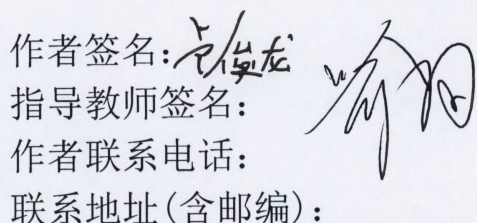 作者签名:卢俊龙
指导教师签名:
作者联系电话:
联系地址(含邮编):